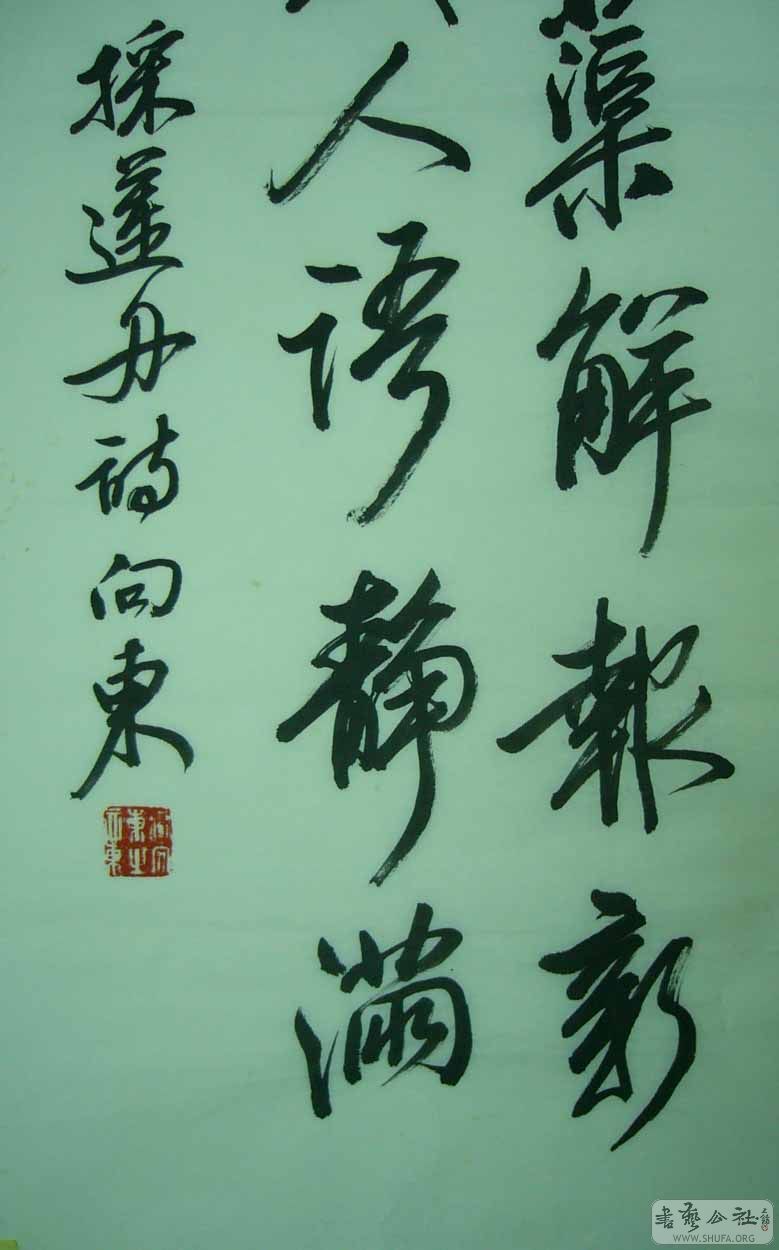 蕖解報新
人語靜滿
採蓮舟詩向東
書藝公社
WWW.SHUFA.ORG